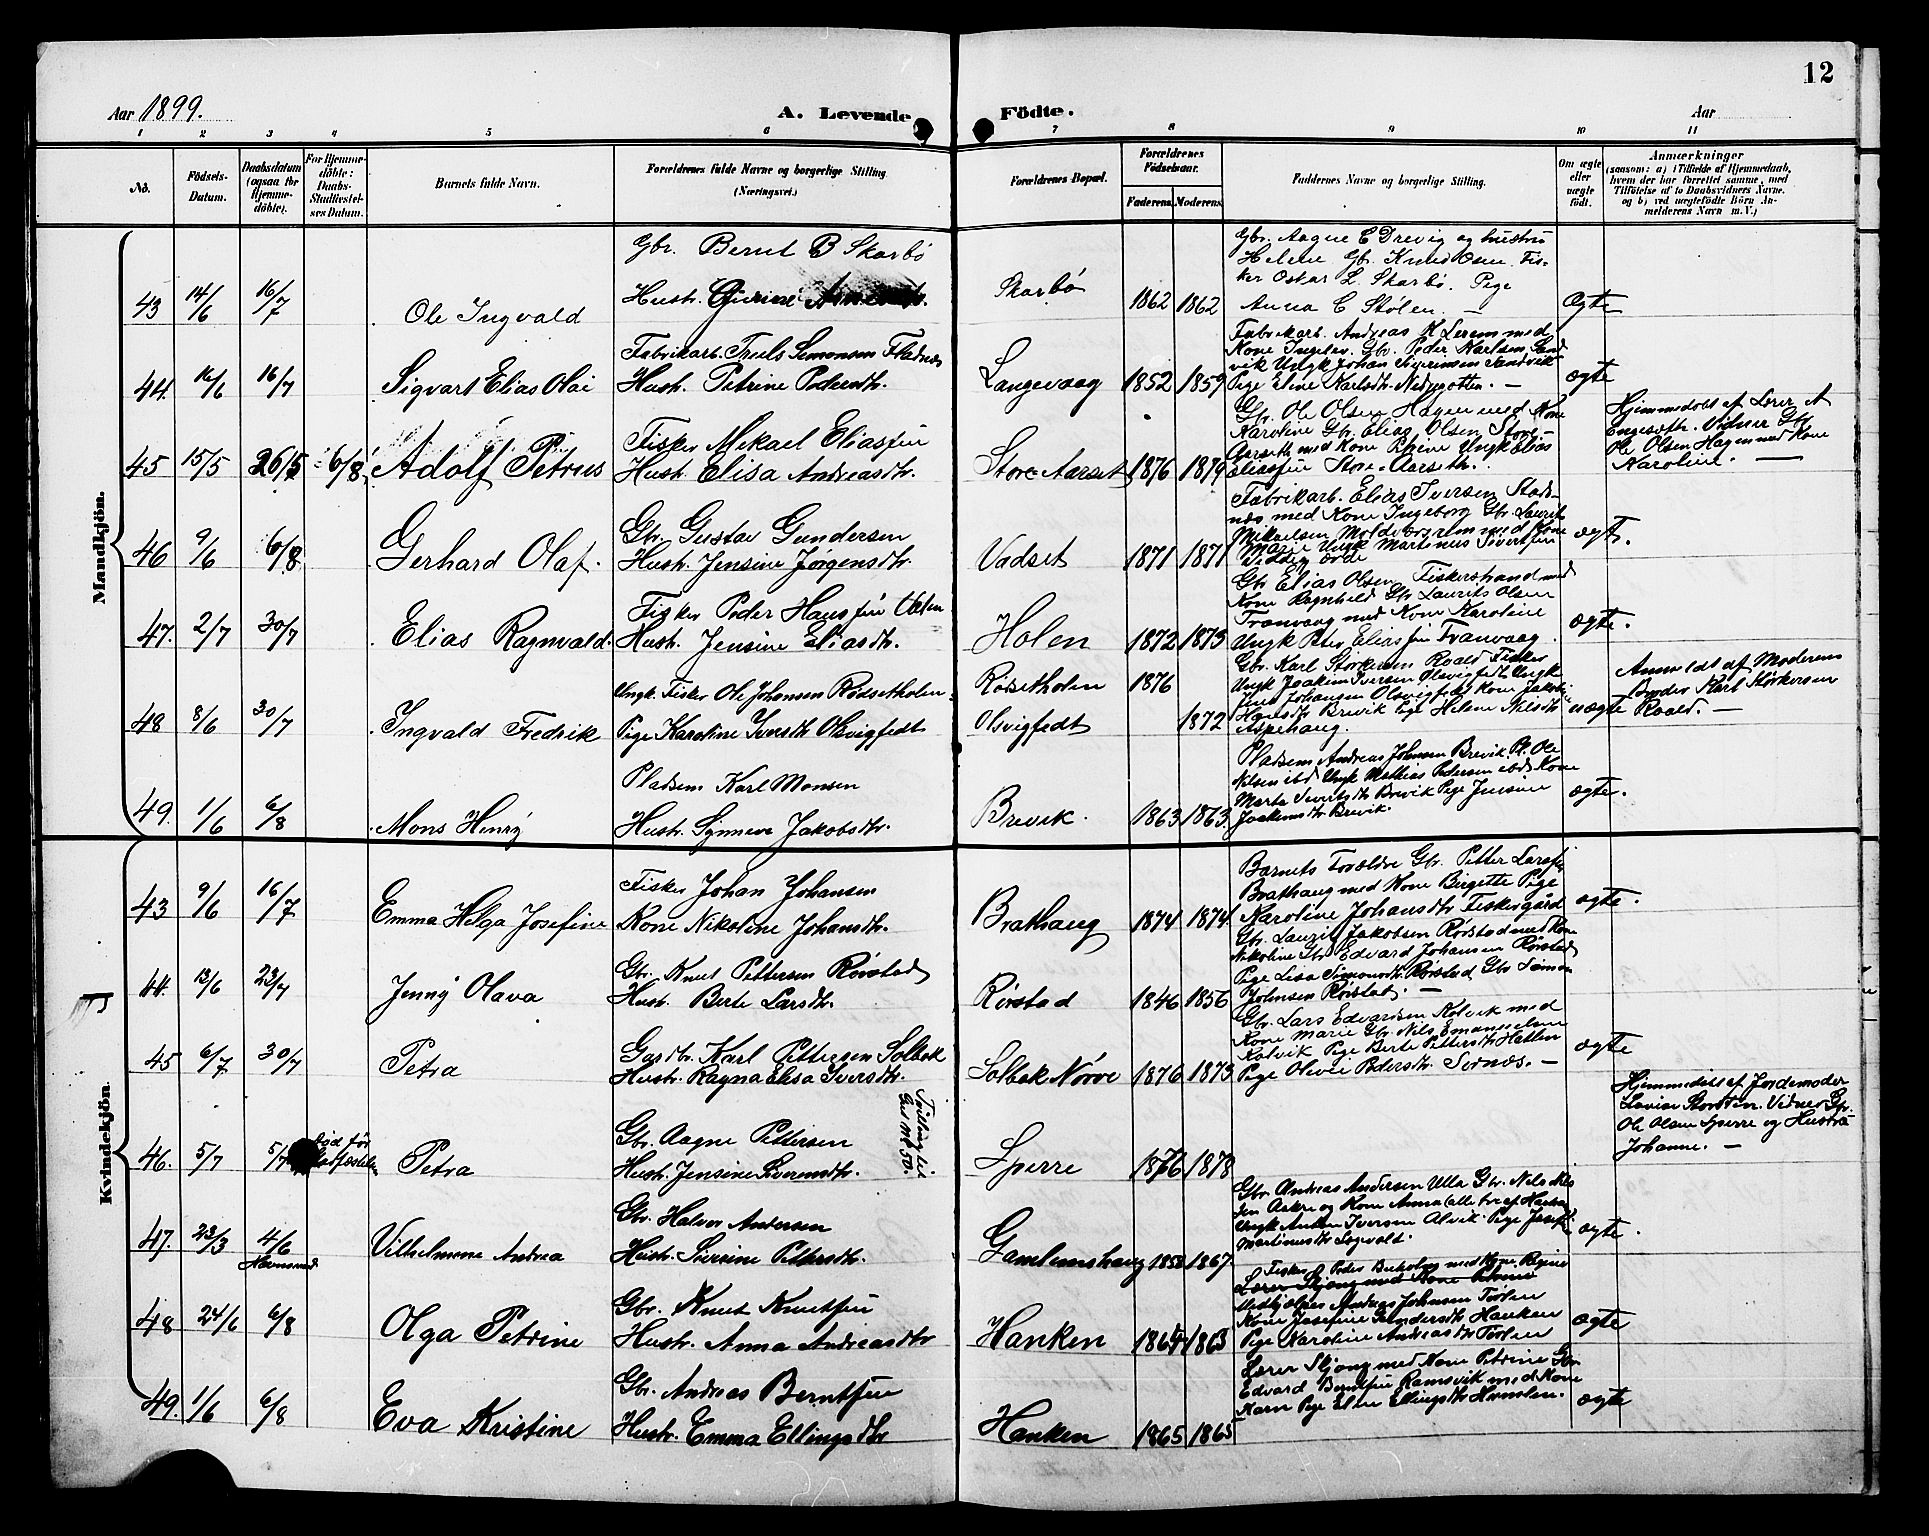 12
Aar 1899.
A. Levende Födte.
Aar
1 2 3 4 5 6 7 8 9 10 11
No.
Födsels-
Datum.
Daabsdatum
(ogsaa for
Hjemme-
döbte).
For Hjemme-
döbte:
Daabs-
Stadfæstel-
ses Datum.
Barnets fulde Navn.
Forældrenes fulde Navne og borgerlige Stilling
(Næringsvei.)
Forældrenes Bopæl.
Forældrenes
Födselsaar.
Faderens. Moderens.
Faddernes Navne og borgerlige Stilling.
Om ægte
eller
uægte
födt.
Anmærkninger
(saasom: a) i Tilfælde af Hjemmedaab,
hvem der har forrettet samme, med
Tilföielse af to Daabsvidners Navne.
og b) ved uægtefödte Börn An-
melderens Navn m. V.)
Mandkjön.
43 14/6 16/7 Ole Ingvald
Gbr. Bernt B Skarbö
Hust.
Skarbö 1862 1862
Gbr. Aagne E Drevig og hustru
Helene Gbr. Knud Osen. Fis-
ker Oskar L. Skarbö. Pige
Anna E Stölen. —
Ægte
44. 16/6 16/7 Sigvart Elias Olai
Fabrikarb. Truls Simonsen Fladnæs
Hust. Petrine Pedersdtr.
Langevaag 1852 1859
Fabrikarb. Andreas K Lerem med
Kone Ingelev. Gbr. Peder Karlsen Sand
vik Ungk Johan Siverinsen Sandvik
Pige Eline Karlsdtr. —
ægte
45 15/5 26/5 6/8 Adolf Petrus
Fisker Mikael Eliassen
Hust. Elisa Andreasdtr.
Store Aarset 1876 1879
Gbr. Ole Olsen Hagen med Kone
Karoline Gbr. Elias Olsen Store-
Aarseth med Kone Ungk Elias
Eliassen Store-Aarseth.
Hjemmedöbt af Lærer A
Engeseth. Vidner Gbr
Ole Olsen Hagen med Kone
Karoline. —
46 9/6 6/8 Gerhard Olaf.
Gbr. Gustav Gundersen
Hust. Jensine Jørgensdtr.
Vadset 1871 1871
Fabrikarb. Elias Iversen Stads-
næs med Kone Ingeborg Gbr. Laurits
Mikaelsen Molde med Kone
Marie Ungk Martinus Sivertsen
ægt.
47. 2/7 30/7 Elias Ragnvald.
Fisker Peder Hanssen
Hust. Jensine Eliasdtr.
Holen 1872 1873
Gbr Elias Olsen Fiskerstrand med
Kone Ragnhild Gbr Laurits Olsen
Tranvaag med Kone Karoline
Ungk Peter Eliassen Tranvaag.
ægte.
48 8/6 30/7 Ingvald Fredrik
Ungk. Fisker Ole Johansen Rödsetholen
Pige Karoline Iversdtr Olsvigfedt
Rödsetholen 1876
Olsvigfedt 1872
Gbr. Karl Störkersen Roald Fisker
Ungk Joakim Iversen Olsvigfedt Ungk
Johansen Olsvigfedt Kone Jakob
Hansdtr Brevik Pige Helene Nilsdtr
Aspehaug.
uægte
Anmeldt af Moderens
Broder Karl Störkersen
Roald. —
49. 1/6 6/8 Mons Henry
Pladsem Karl Monsen
Hust. Synneve Jakobsdtr.
Brevik. 1863 1863
Pladsem Andreas Johnsen Brevik. Pl. Ole
Nilsen ibd Ungk Mathias Pedersen ibd Kone
Marta Sivertsdtr Brevik Pige Jensine
Joakimsdtr Brevik.
ægte.
Kvindekjön.
43 9/6 16/7 Emma Helga Josefine
Fisker Johan Johansen
Kone Nikoline Johansdtr.
Brathaug 1874 1874
Barnets Forældre Gbr. Petter Larsen
Brathaug med Kone Birgette Pige
Karoline Johansdtr Fiskergård
ægte.
44. 13/6 23/7 Jenny Olava
Gbr. Knut Pettersen Rörstad
Hust. Berte Larsdtr.
Rörstad 1846 1856
Gbr. Laurits Jakobsen Rörstad med Kone
Nikoline Gbr Edvard Johansen Rörstad
Pige Lisa Simonsdtr. Rörstad Gbr Simon
Johnsen Rörstad. —
45 6/7 30/7 Petra
Gaardbr. Karl Pettersen Solbak
Hust. Ragna Elisa Iversdtr.
Solbak Nörve 1876 1873
Gbr. Lars Edvardsen Kolvik med
Kone Marie Gbr. Nils Emanuelsen
Kolvik Pige Berte Pettersdtr Hatlen
Pige Olivie Pedersdtr. Sornæs. —
ægte
46. 5/7 5/7 död för
Stadfæstelsen Petra
Gbr. Aagne Pettersen
Hust. Jensine Sverensdtr.
Tvilling til
Gut No 50.
Sperre 1876 1878
Hjemmedöbt af Jordemoder
Lovise Storsten. Vidner Gbr.
Ole Olsen Sperre og Hustru
Johanne. —
47. 23/3 4/6 Vilhelmine Andrea
Gbr. Halvor Andersen
Hust. Siverine Pettersdtr.
Gamlemshaug 1858 1867
Gbr Andreas Andersen Ulla Gbr. Nils Nils
sen Askre og Kone Anna (alle tre af Haram
Ungk Anton Iversen Alvik Pige Josefi
Martinusdtr Sogvald.
ægte.
48 24/6 6/8 Olga Petrine
Gbr. Knut Knutsen
Hust. Anna Andreasdtr
Hanken 1864 1863
Fisker Peder Buholm med Kone Regine
Lærer Skjong med Kone Petrine
Andreas Johnsen Törlen
Kone Josefine Gundersdtr Hanken
Pige Karoline Andreasdtr Törlen
ægte
49. 1/6 6/8 Eva Kristine
Gbr. Andreas Berntsen
Hust. Emma Ellingsdtr
Hanken 1865 1865
Lærer Skjong med Kone Petrine Gbr
Edvard Berntsen Ramsvik med Kone
Karn Pige Eline Ellingsdtr Hamlen.
ægte